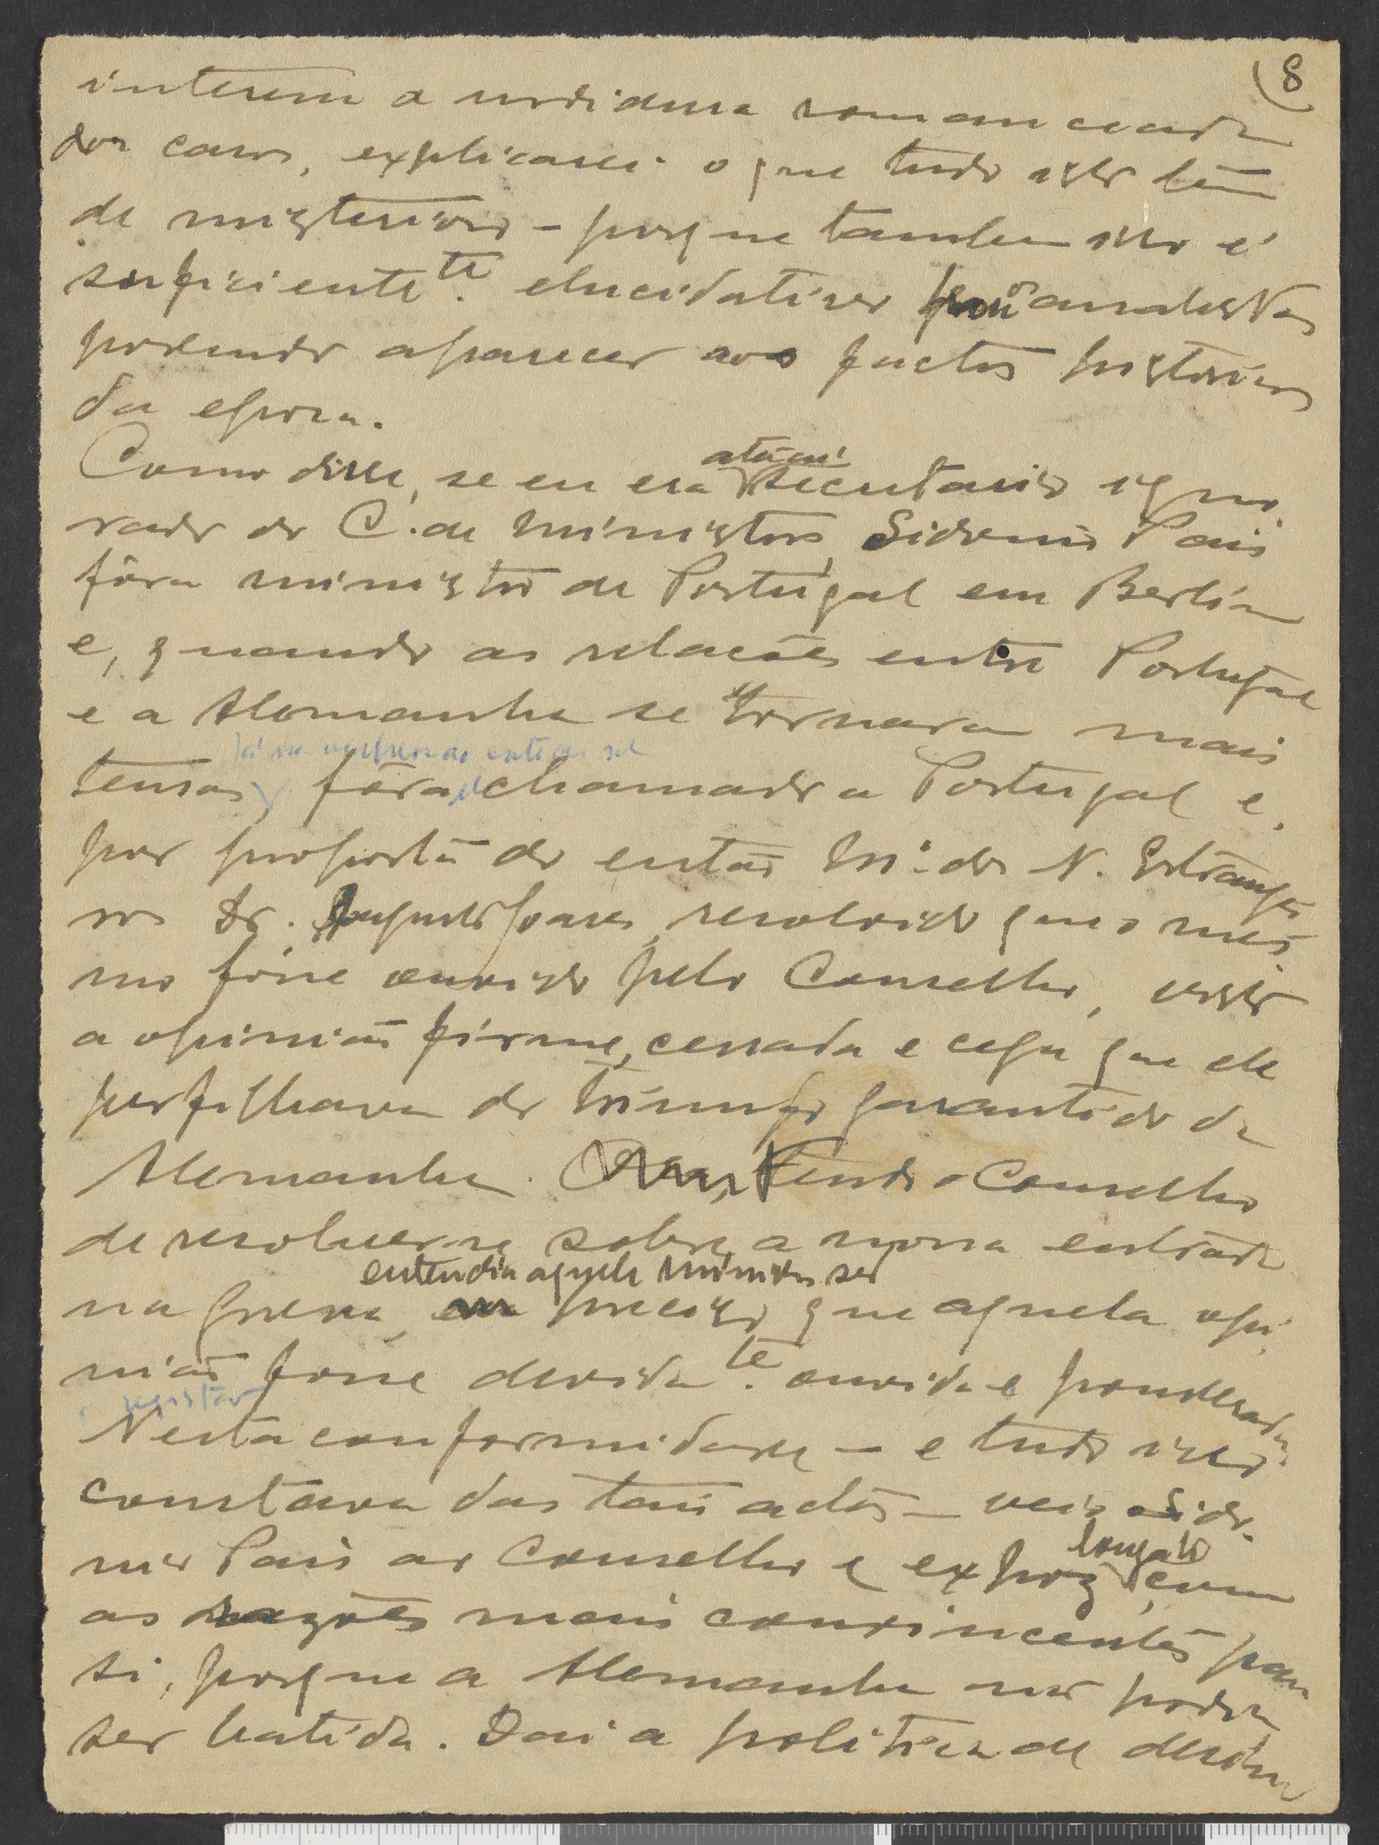 8
interem a urdidura romanceada
dos casos, explicarei o que tudo isto têm
de misterioso - porque tambem isso é
suficiente te. elucidativo
podendo aparecer aos factos historicos
da epoca.
Como disse, se eu era até aqui secretario igno
rado do C. de Ministros, Sidonio Pais
fôra ministro de Portugal em Berlim
e, quando as relações entre Portugal
e a Alemanha se tornaram mais
tensas, fôra chamado a Portugal e,
por proposta do então M.º dos N. Estrangei
ros Dr. Augusto Soares, resolvido que o mes
mo fôsse ouvido pelo Conselho, visto
a opinião firme, cerrada e cega que ele
perfilhava do triunfo garantido da
Alemanha. Tendo o Conselho
de resolver-se sobre a nossa entrada
entendia aquele ministro ser
na guerra, preciso que aquela opi
nião fosse devida te. ouvida e ponderada.
registar
Nesta conformidade - e tudo isso
constava das tais actas - veio Sido
nio Pais ao Conselho e expoz longa te, com
as razões mais convincentes para
si, porque a Alemanha não podia
ser batida. Dai a politica de